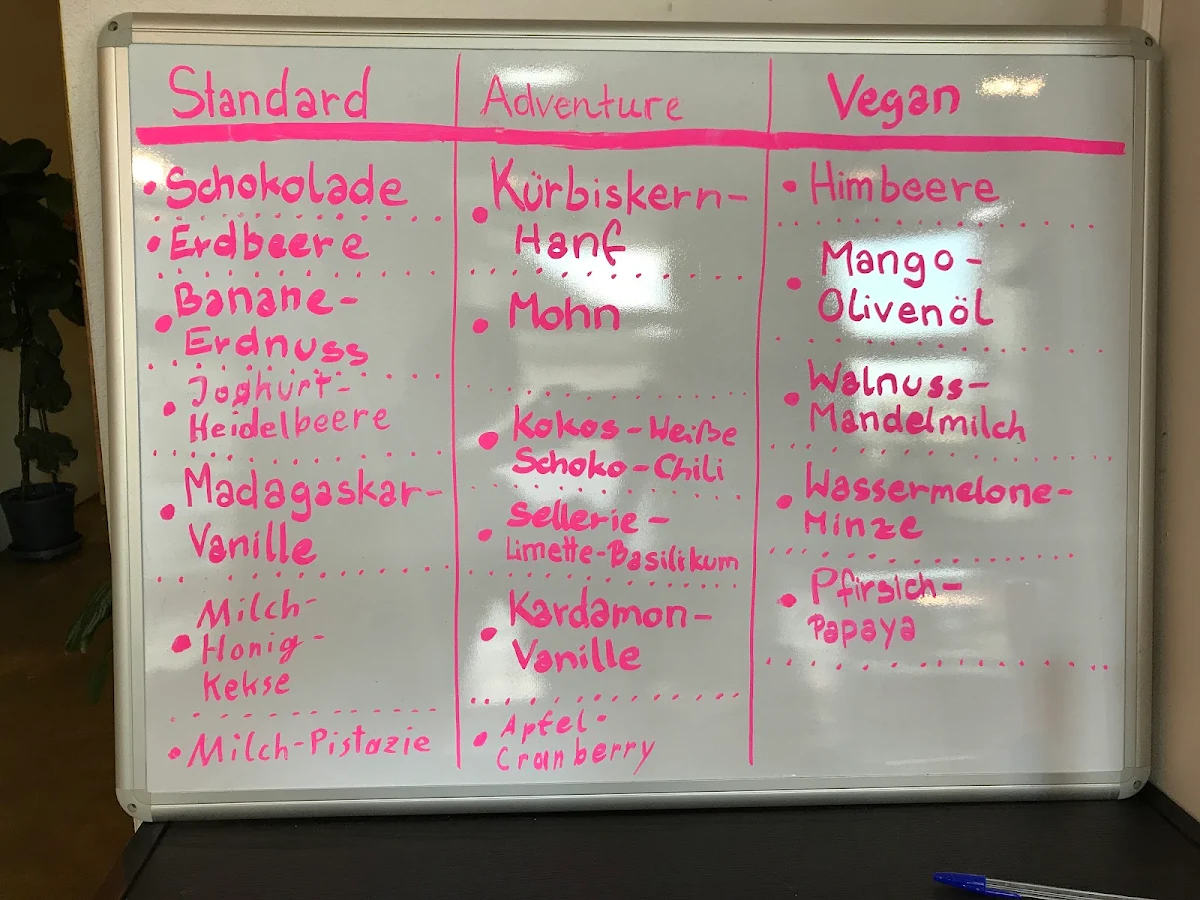 Standard
• Schokolade
• Erdbeere
• Banane-
Erdnuss
• Joghurt-
Heidelbeere
• Madagaskar-
Vanille
• Milch-
Honig-
Kekse
• Milch-Pistazie
Adventure
• Kürbiskern-
Hanf
• Mohn
• Kokos-Weiße
Schoko-Chili
• Sellerie-
Limette-Basilikum
• Kardamon-
Vanille
• Apfel-
Cranberry
Vegan
• Himbeere
• Mango-
Olivenöl
• Walnuss-
Mandelmilch
• Wassermelone-
Minze
• Pfirsich-
Papaya